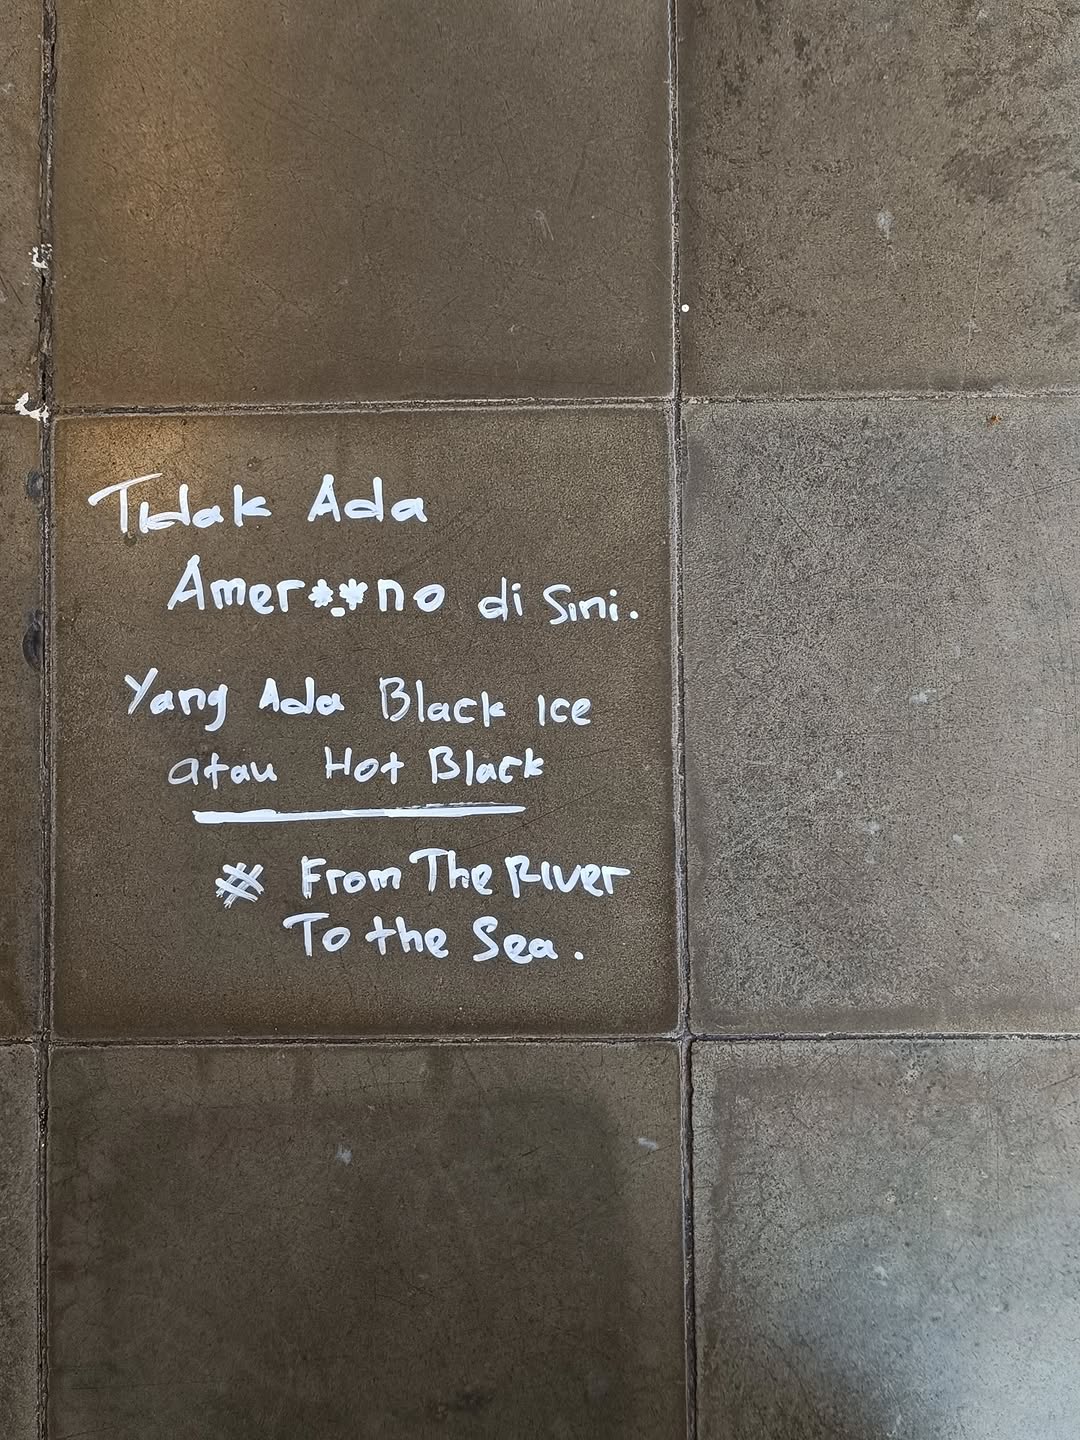 Tidak Ada
Amer**no di Sini.
Yang Ada Black Ice
atau Hot Black
# From The River
To the Sea.